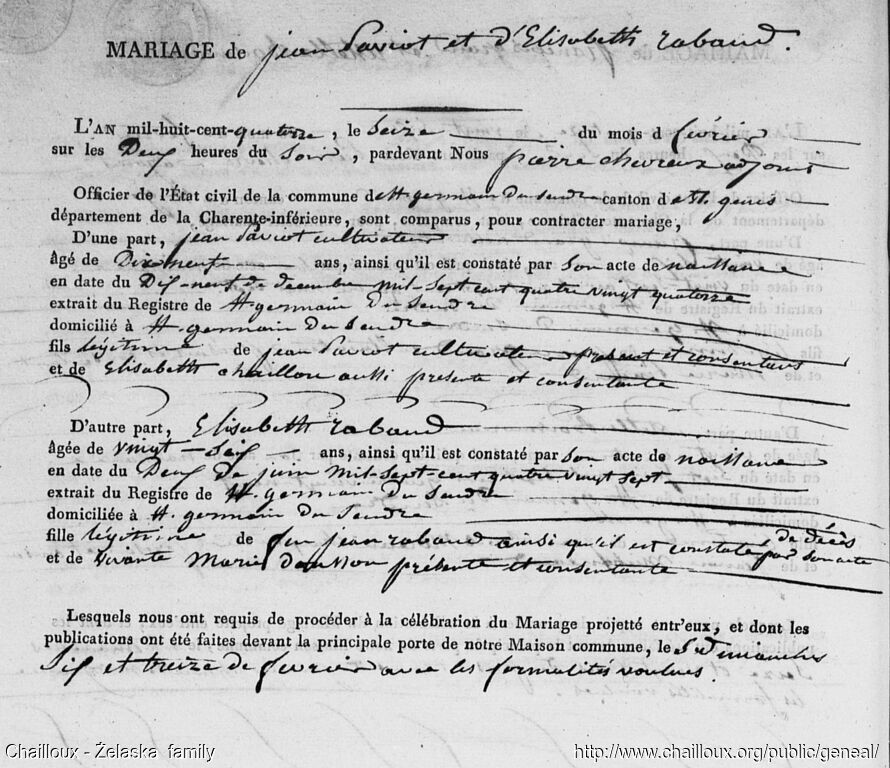 MARIAGE de jean Saviot et d'Elisabeth rabaud.
L'AN mil-huit-cent-quatorze, le Seize du mois d fevrier
sur les Deux heures du Soir, pardevant Nous pierre chevreux adjoint
Officier de l'État civil de la commune de St. germain du Seudre canton de St. genis
département de la Charente-inférieure, sont comparus, pour contracter mariage,
D'une part, jean Saviot cultivateur
âgé de Dix neuf ans, ainsi qu'il est constaté par Son acte de naissance
en date du Dix-neuf de decembre mil Sept cent quatre vingt quatorze
extrait du Registre de St. germain du Seudre
domicilié à St. germain du Seudre
fils légitime de jean Saviot cultivateur présent et consentant
et de Elisabeth chaillou aussi presente et consentante
D'autre part, Elisabeth rabaud
âgée de vingt-Six ans, ainsi qu'il est constaté par Son acte de naissance
en date du Deux de juin mil Sept cent quatre vingt Sept
extrait du Registre de St. germain du Seudre
domiciliée à St. germain du Seudre
fille légitime de feu jean rabaud ainsi qu'il est constaté par son acte de décès
et de vivante Marie présente et consentante
Lesquels nous ont requis de procéder à la célébration du Mariage projetté entr'eux, et dont les
publications ont été faites devant la principale porte de notre Maison commune, le Dimanches
Six et treize de fevrier avec les formalités voulues.
Chailloux - Żelaska family
http://www.chailloux.org/public/geneal/